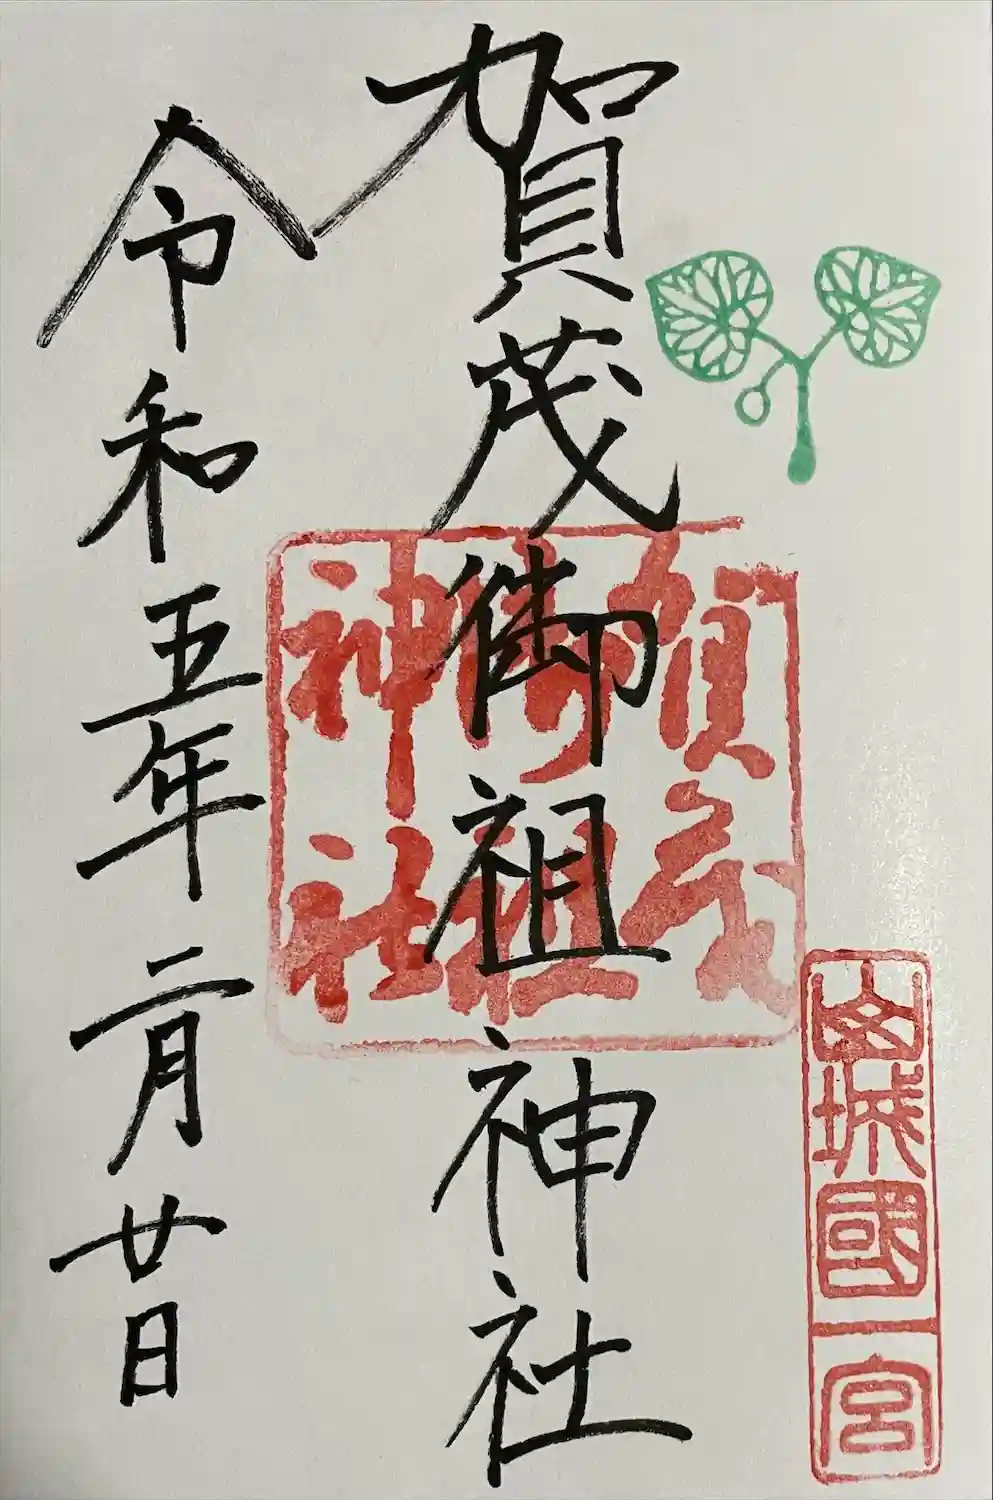 山城國一宮
賀茂御祖神社
賀茂
御祖
神社
令和五年二月廿日